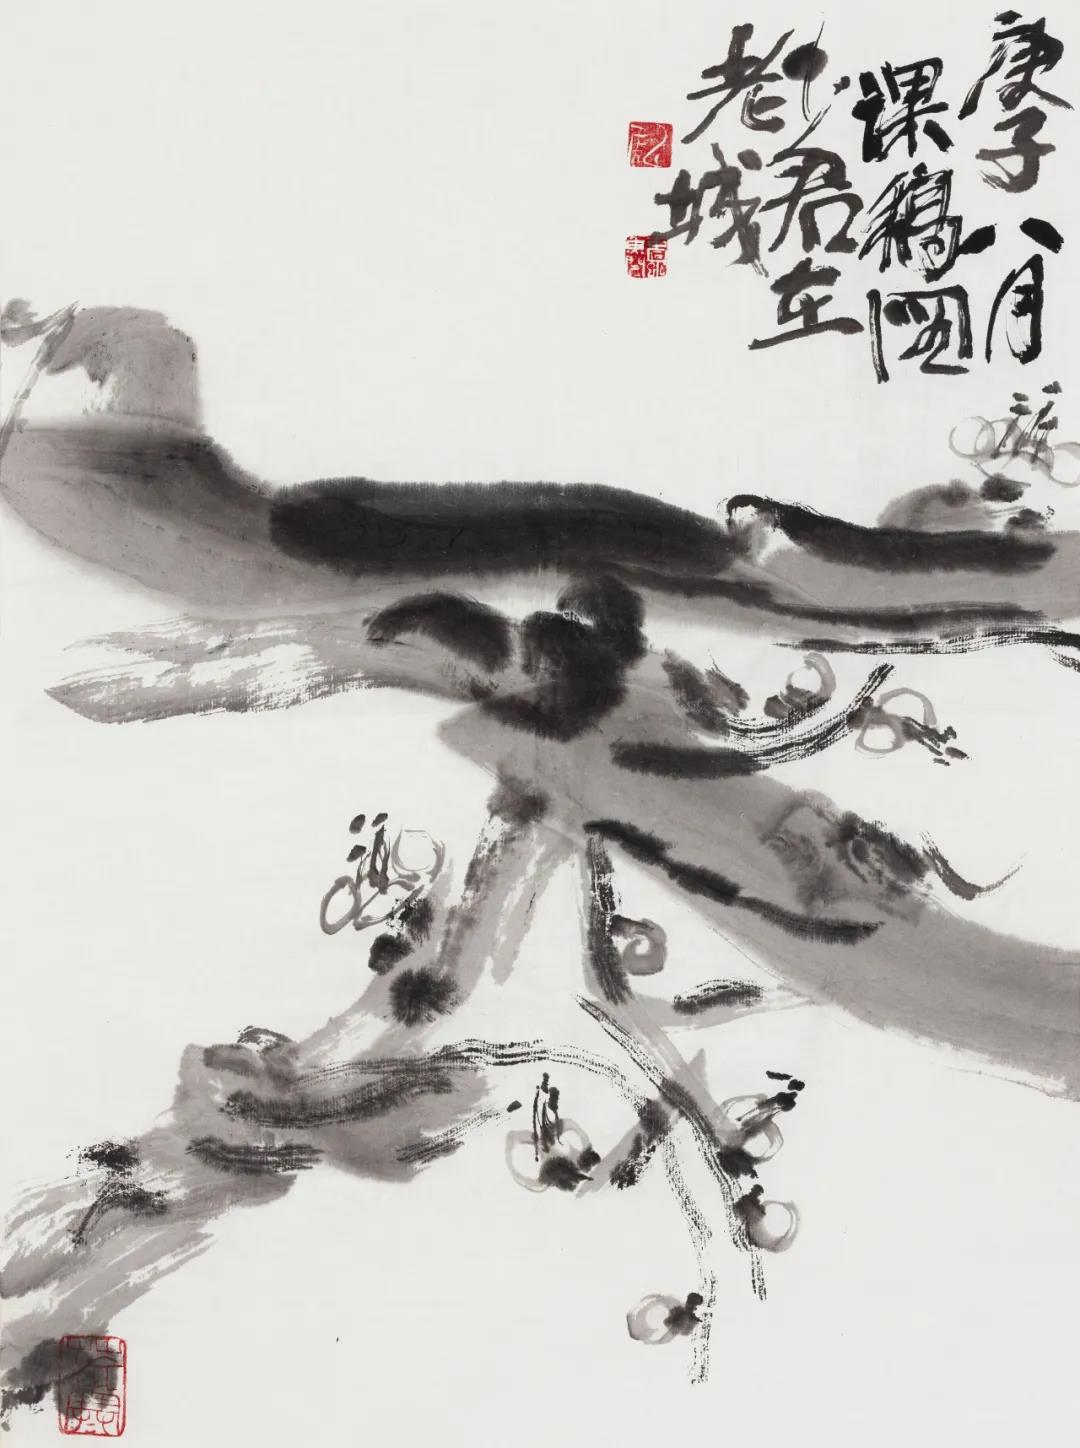 庚子八月
课稿图
少君在
老城